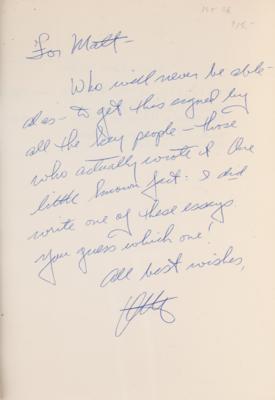 For Matt -
Who will never be able -
alas - to get this signed by
all the key people - those
who actually wrote it. One
little known fact: I did
write one of these essays
You guess which one!
All best wishes,